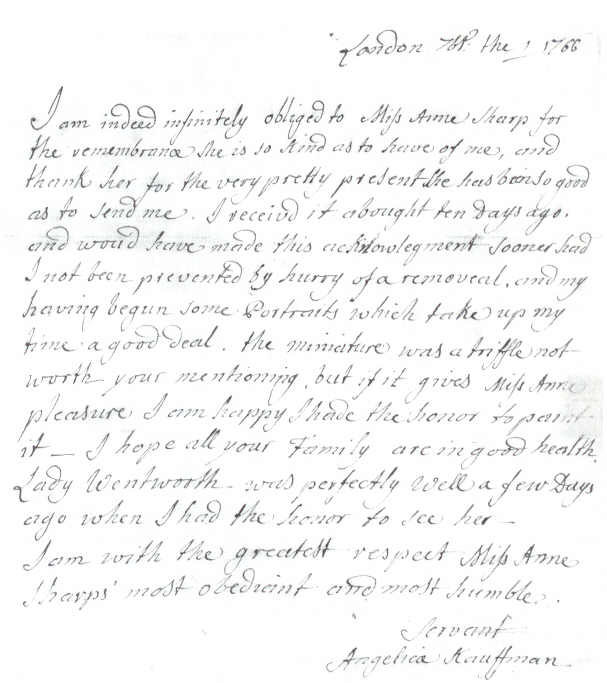 London 7br. the 1 1766
I am indeed infinitely obliged to Miss Anne Sharp for
the remembrance she is so kind as to have of me, and
thank her for the very pretty present she has been so good
as to send me. I receivd it abought ten Days ago.
and woud have made this acknowlegment sooner had
I not been prevented by hurry of a removeal, and my
having begun some Portraits which take up my
time a good deal. the miniature was a triffle not
worth your mentioning, but if it gives Miss Anne
pleasure I am happy I hade the honor to paint
it — I hope all your Family are in good health.
Lady Wentworth – was perfectly well a few Days
ago when I had the honor to see her –
I am with the greatest respect Miss Anne
Sharps' most obediant and most humble.
Servant
Angelica Kauffman